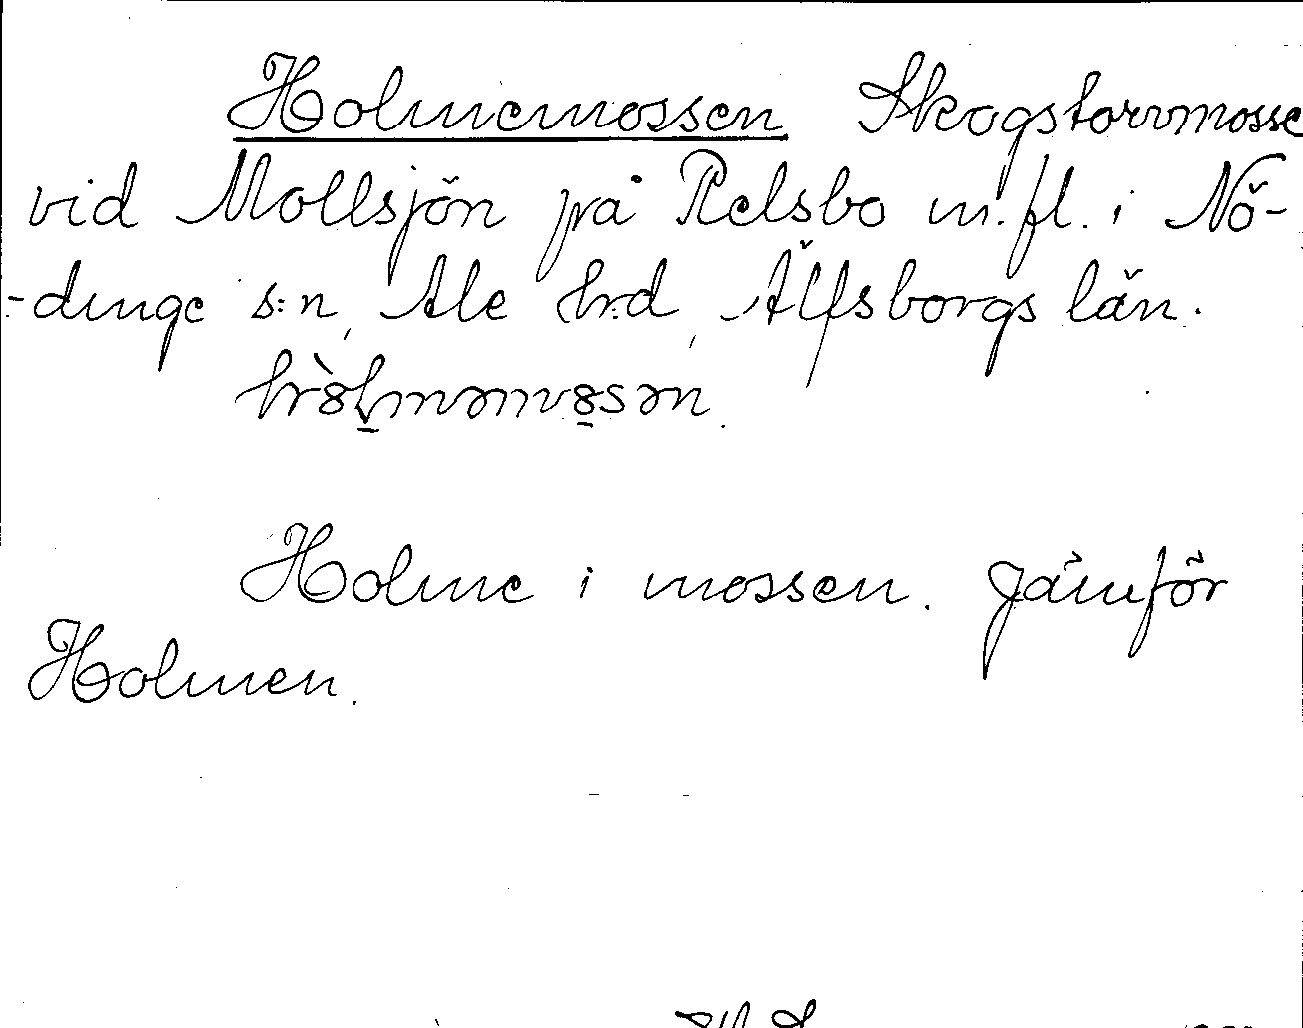 Holmemossen Skogstorvmosse
vid Mollsjön på Relsbo m.fl. i Nö-
-dinge s:n, Ale hrd, Älfsborgs län.
Holme i mossen. Jämför
Holmen.